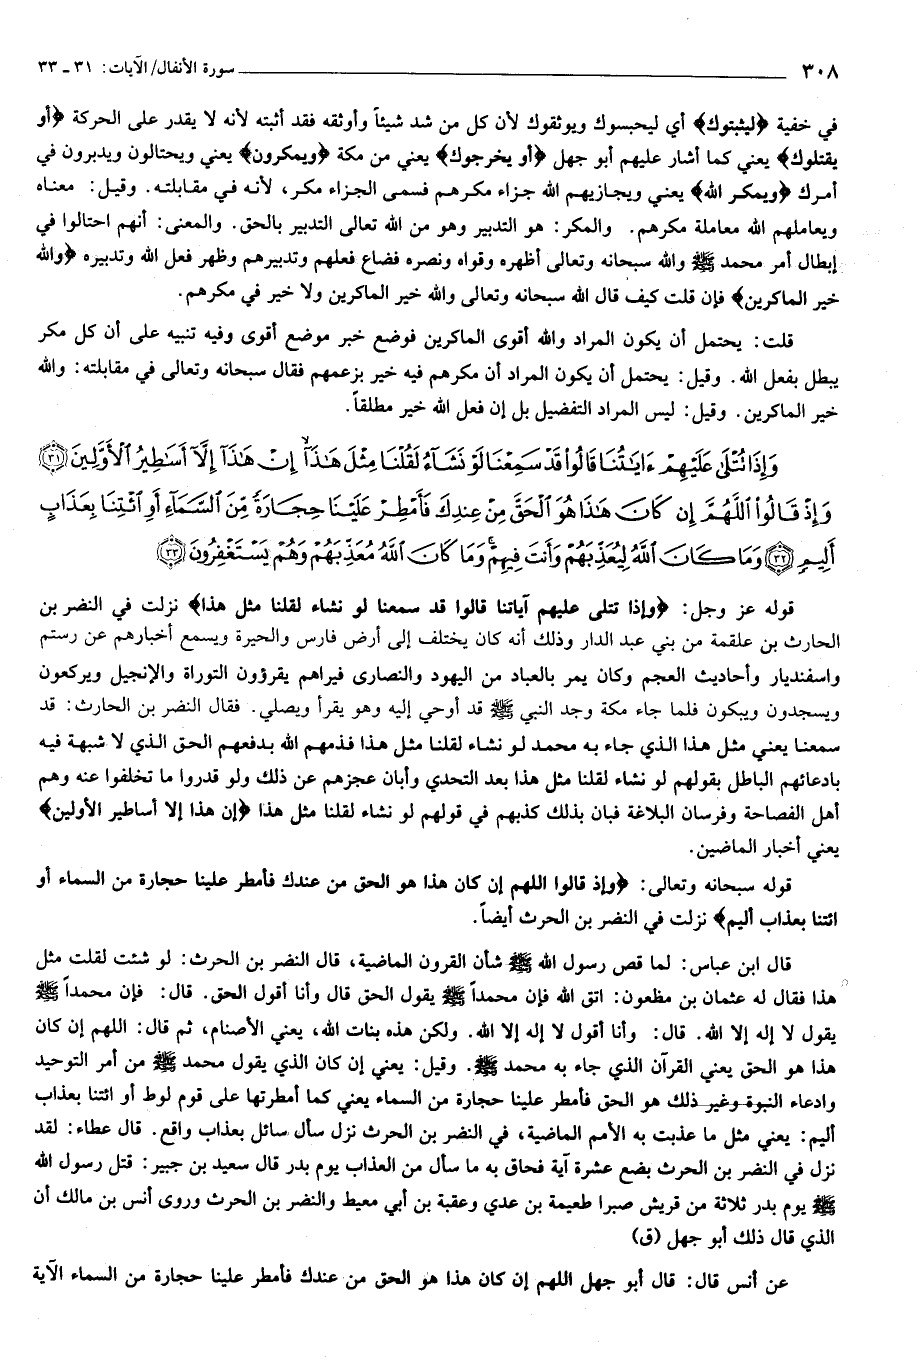 ٣٠٨ سورة الأنفال/ الآيات: ٣١ ـ ٣٣
في خفية ﴿ليثبتوك﴾ أي ليحبسوك ويوثقوك لأن كل من شد شيئاً وأوثقه فقد أثبته لأنه لا يقدر على الحركة ﴿أو
يقتلوك﴾ يعني كما أشار عليهم أبو جهل ﴿أو يخرجوك﴾ يعني من مكة ﴿ويمكرون﴾ يعني ويحتالون ويدبرون في
أمرك ﴿ويمكر الله﴾ يعني ويجازيهم الله جزاء مكرهم فسمى الجزاء مكر، لأنه في مقابلته. وقيل: معناه
ويعاملهم الله معاملة مكرهم. والمكر: هو التدبير وهو من الله تعالى التدبير بالحق. والمعنى: أنهم احتالوا في
إبطال أمر محمد ﷺ والله سبحانه وتعالى أظهره وقواه ونصره فضاع فعلهم وتدبيرهم وظهر فعل الله وتدبيره ﴿والله
خير الماكرين﴾ فإن قلت كيف قال الله سبحانه وتعالى والله خير الماكرين ولا خير في مكرهم.
قلت: يحتمل أن يكون المراد والله أقوى الماكرين فوضع خبر موضع أقوى وفيه تنبيه على أن كل مكر
يبطل بفعل الله. وقيل: يحتمل أن يكون المراد أن مكرهم فيه خير بزعمهم فقال سبحانه وتعالى في مقابلته: والله
خير الماكرين. وقيل: ليس المراد التفضيل بل إن فعل الله خير مطلقاً.
وَإِذَا تُتْلَىٰ عَلَيْهِمْ ءَايَٰتُنَا قَالُوا۟ قَدْ سَمِعْنَا لَوْ نَشَآءُ لَقُلْنَا مِثْلَ هَٰذَآ ۙ إِنْ هَٰذَآ إِلَّآ أَسَٰطِيرُ ٱلْأَوَّلِينَ ﴿٣١﴾
وَإِذْ قَالُوا۟ ٱللَّهُمَّ إِن كَانَ هَٰذَا هُوَ ٱلْحَقَّ مِنْ عِندِكَ فَأَمْطِرْ عَلَيْنَا حِجَارَةً مِّنَ ٱلسَّمَآءِ أَوِ ٱئْتِنَا بِعَذَابٍ
أَلِيمٍ ﴿٣٢﴾ وَمَا كَانَ ٱللَّهُ لِيُعَذِّبَهُمْ وَأَنتَ فِيهِمْ ۚ وَمَا كَانَ ٱللَّهُ مُعَذِّبَهُمْ وَهُمْ يَسْتَغْفِرُونَ ﴿٣٣﴾
قوله عز وجل: ﴿وإذا تتلى عليهم آياتنا قالوا قد سمعنا لو نشاء لقلنا مثل هذا﴾ نزلت في النضر بن
الحارث بن علقمة من بني عبد الدار وذلك أنه كان يختلف إلى أرض فارس والحيرة ويسمع أخبارهم عن رستم
واسفنديار وأحاديث العجم وكان يمر بالعباد من اليهود والنصارى فيراهم يقرؤون التوراة والإنجيل ويركعون
ويسجدون ويبكون فلما جاء مكة وجد النبي ﷺ قد أوحي إليه وهو يقرأ ويصلي. فقال النضر بن الحارث: قد
سمعنا يعني مثل هذا الذي جاء به محمد لو نشاء لقلنا مثل هذا فذمهم الله بدفعهم الحق الذي لا شبهة فيه
بادعائهم الباطل بقولهم لو نشاء لقلنا مثل هذا بعد التحدي وأبان عجزهم عن ذلك ولو قدروا ما تخلفوا عنه وهم
أهل الفصاحة وفرسان البلاغة فبان بذلك كذبهم في قولهم لو نشاء لقلنا مثل هذا ﴿إن هذا إلا أساطير الأولين﴾
يعني أخبار الماضين.
قوله سبحانه وتعالى: ﴿وإذ قالوا اللهم إن كان هذا هو الحق من عندك فأمطر علينا حجارة من السماء أو
ائتنا بعذاب أليم﴾ نزلت في النضر بن الحرث أيضاً.
قال ابن عباس: لما قص رسول الله ﷺ شأن القرون الماضية، قال النضر بن الحرث: لو شئت لقلت مثل
هذا فقال له عثمان بن مظعون: اتق الله فإن محمداً ﷺ يقول الحق قال وأنا أقول الحق. قال: فإن محمداً ﷺ
يقول لا إله إلا الله. قال: وأنا أقول لا إله إلا الله. ولكن هذه بنات الله، يعني الأصنام، ثم قال: اللهم إن كان
هذا هو الحق يعني القرآن الذي جاء به محمد ﷺ. وقيل: يعني إن كان الذي يقول محمد ﷺ من أمر التوحيد
وادعاء النبوة وغير ذلك هو الحق فأمطر علينا حجارة من السماء يعني كما أمطرتها على قوم لوط أو ائتنا بعذاب
أليم: يعني مثل ما عذبت به الأمم الماضية، في النضر بن الحرث نزل سأل سائل بعذاب واقع. قال عطاء: لقد
نزل في النضر بن الحرث بضع عشرة آية فحاق به ما سأل من العذاب يوم بدر قال سعيد بن جبير: قتل رسول الله
ﷺ يوم بدر ثلاثة من قريش صبرا طعيمة بن عدي وعقبة بن أبي معيط والنضر بن الحرث وروى أنس بن مالك أن
الذي قال ذلك أبو جهل (ق)
عن أنس قال: قال أبو جهل اللهم إن كان هذا هو الحق من عندك فأمطر علينا حجارة من السماء الآية